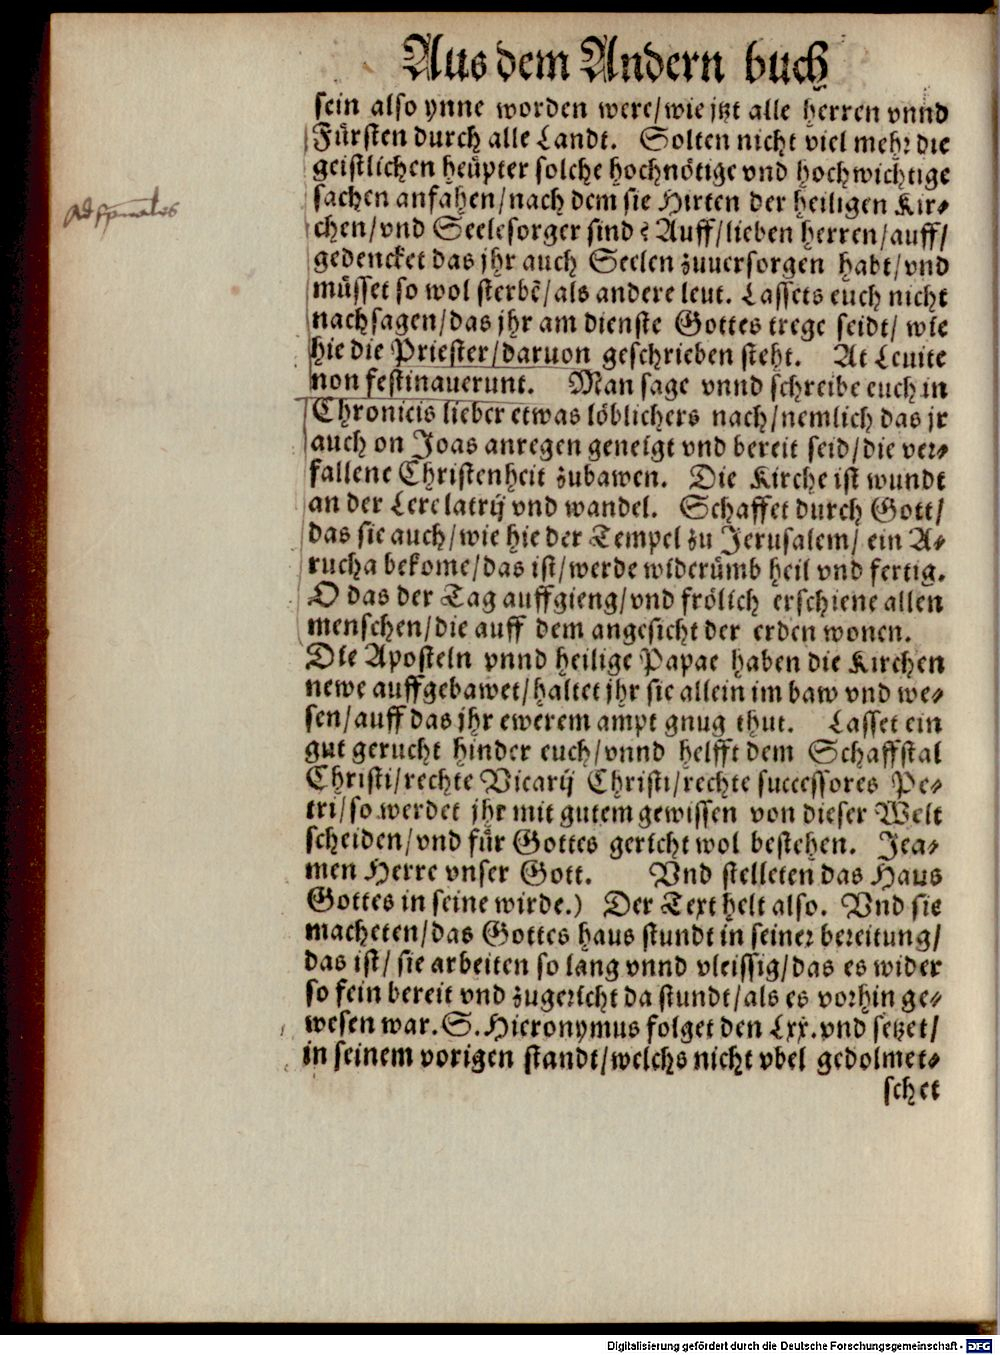 Aus dem Andern buch
sein also ynne worden were/wie jtzt alle herren vnnd
Fürsten durch alle Landt. Solten nicht viel mehr die
geistlichen heüpter solche hochnötige vnd hochwichtige
sachen anfahen/nach dem sie Hirten der heiligen Kir-
chen/vnd Seelesorger sind? Auff/lieben herren/auff/
gedencket das jhr auch Seelen zuuersorgen habt/vnd
müsset so wol sterbẽ/als andere leut. Lassets euch nicht
nachsagen/das jhr am dienste Gottes trege seidt/ wie
hie die Priester/daruon geschrieben steht. At Leuite
non festinauerunt. Man sage vnnd schreibe euch in
Chronicis lieber etwas löblichers nach/nemlich das jr
auch on Joas anregen geneigt vnd bereit seid/die ver-
fallene Christenheit zubawen. Die Kirche ist wundt
an der Lere latrij vnd wandel. Schaffet durch Gott/
das sie auch/wie hie der Tempel zu Jerusalem/ ein A-
rucha bekome/das ist/werde widerümb heil vnd fertig.
O das der Tag auffgieng/vnd frölich erschiene allen
menschen/die auff dem angesicht der erden wonen.
Die Aposteln vnnd heilige Papae haben die Kirchen
newe auffgebawet/haltet jhr sie allein im baw vnd we-
sen/auff das jhr ewerem ampt gnug thut. Lasset ein
gut gerucht hinder euch/vnnd helfft dem Schaffstal
Christi/rechte Vicarij Christi/rechte successores Pe-
tri/so werdet jhr mit gutem gewissen von dieser Welt
scheiden/vnd für Gottes gericht wol bestehen. Jea-
men Herre vnser Gott. Vnd stelleten das Haus
Gottes in seine wirde.) Der Text helt also. Vnd sie
macheten/das Gottes haus stundt in seiner bereitung/
das ist/ sie arbeiten so lang vnnd vleissig/das es wider
so fein bereit vnd zugericht da stundt/als es vorhin ge-
wesen war. S. Hieronymus folget den Lxx. vnd setzet/
in seinem vorigen standt/welchs nicht vbel gedolmet-
schet
Digitalisierung gefördert durch die Deutsche Forschungsgemeinschaft - DFG